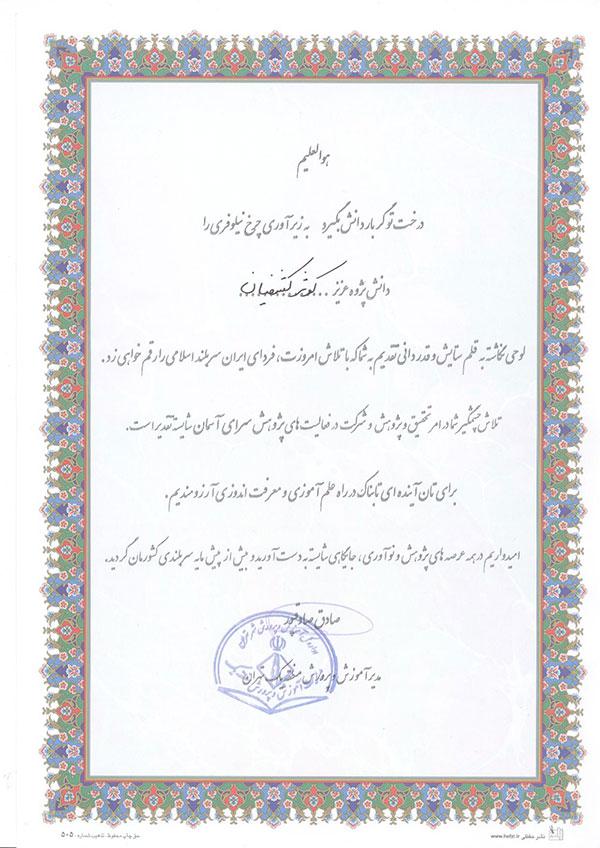 هوالعلیم
درخت تو گر بار دانش بگیرد به زیر آوری چرخ نیلوفری را
دانش پژوه عزیز .. کوثر کشفیان
لوحی نگاشته به قلم ستایش و قدردانی تقدیم به شما که با تلاش امروزت، فردای ایران سربلند اسلامی را رقم خواهی زد.
تلاش چشمگیر شما در امر تحقیق و پژوهش و شرکت در فعالیت های پژوهش سرای آسمان شایسته تقدیر است.
برای تان آینده ای تابناک در راه علم آموزی و معرفت اندوزی آرزومندیم.
امیدواریم در همه عرصه های پژوهش و نوآوری، جایگاهی شایسته به دست آورید و بیش از پیش مایه سربلندی کشورمان گردید.
صادق صادقپور
مدیر آموزش و پرورش منطقه یک تهران
نشر حفظی www.hefzi.ir
حق چاپ محفوظ. تذهیب شماره: ۵۰۵